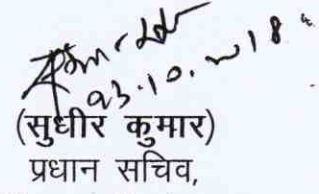 23.10.2018
(सुधीर कुमार)
प्रधान सचिव,